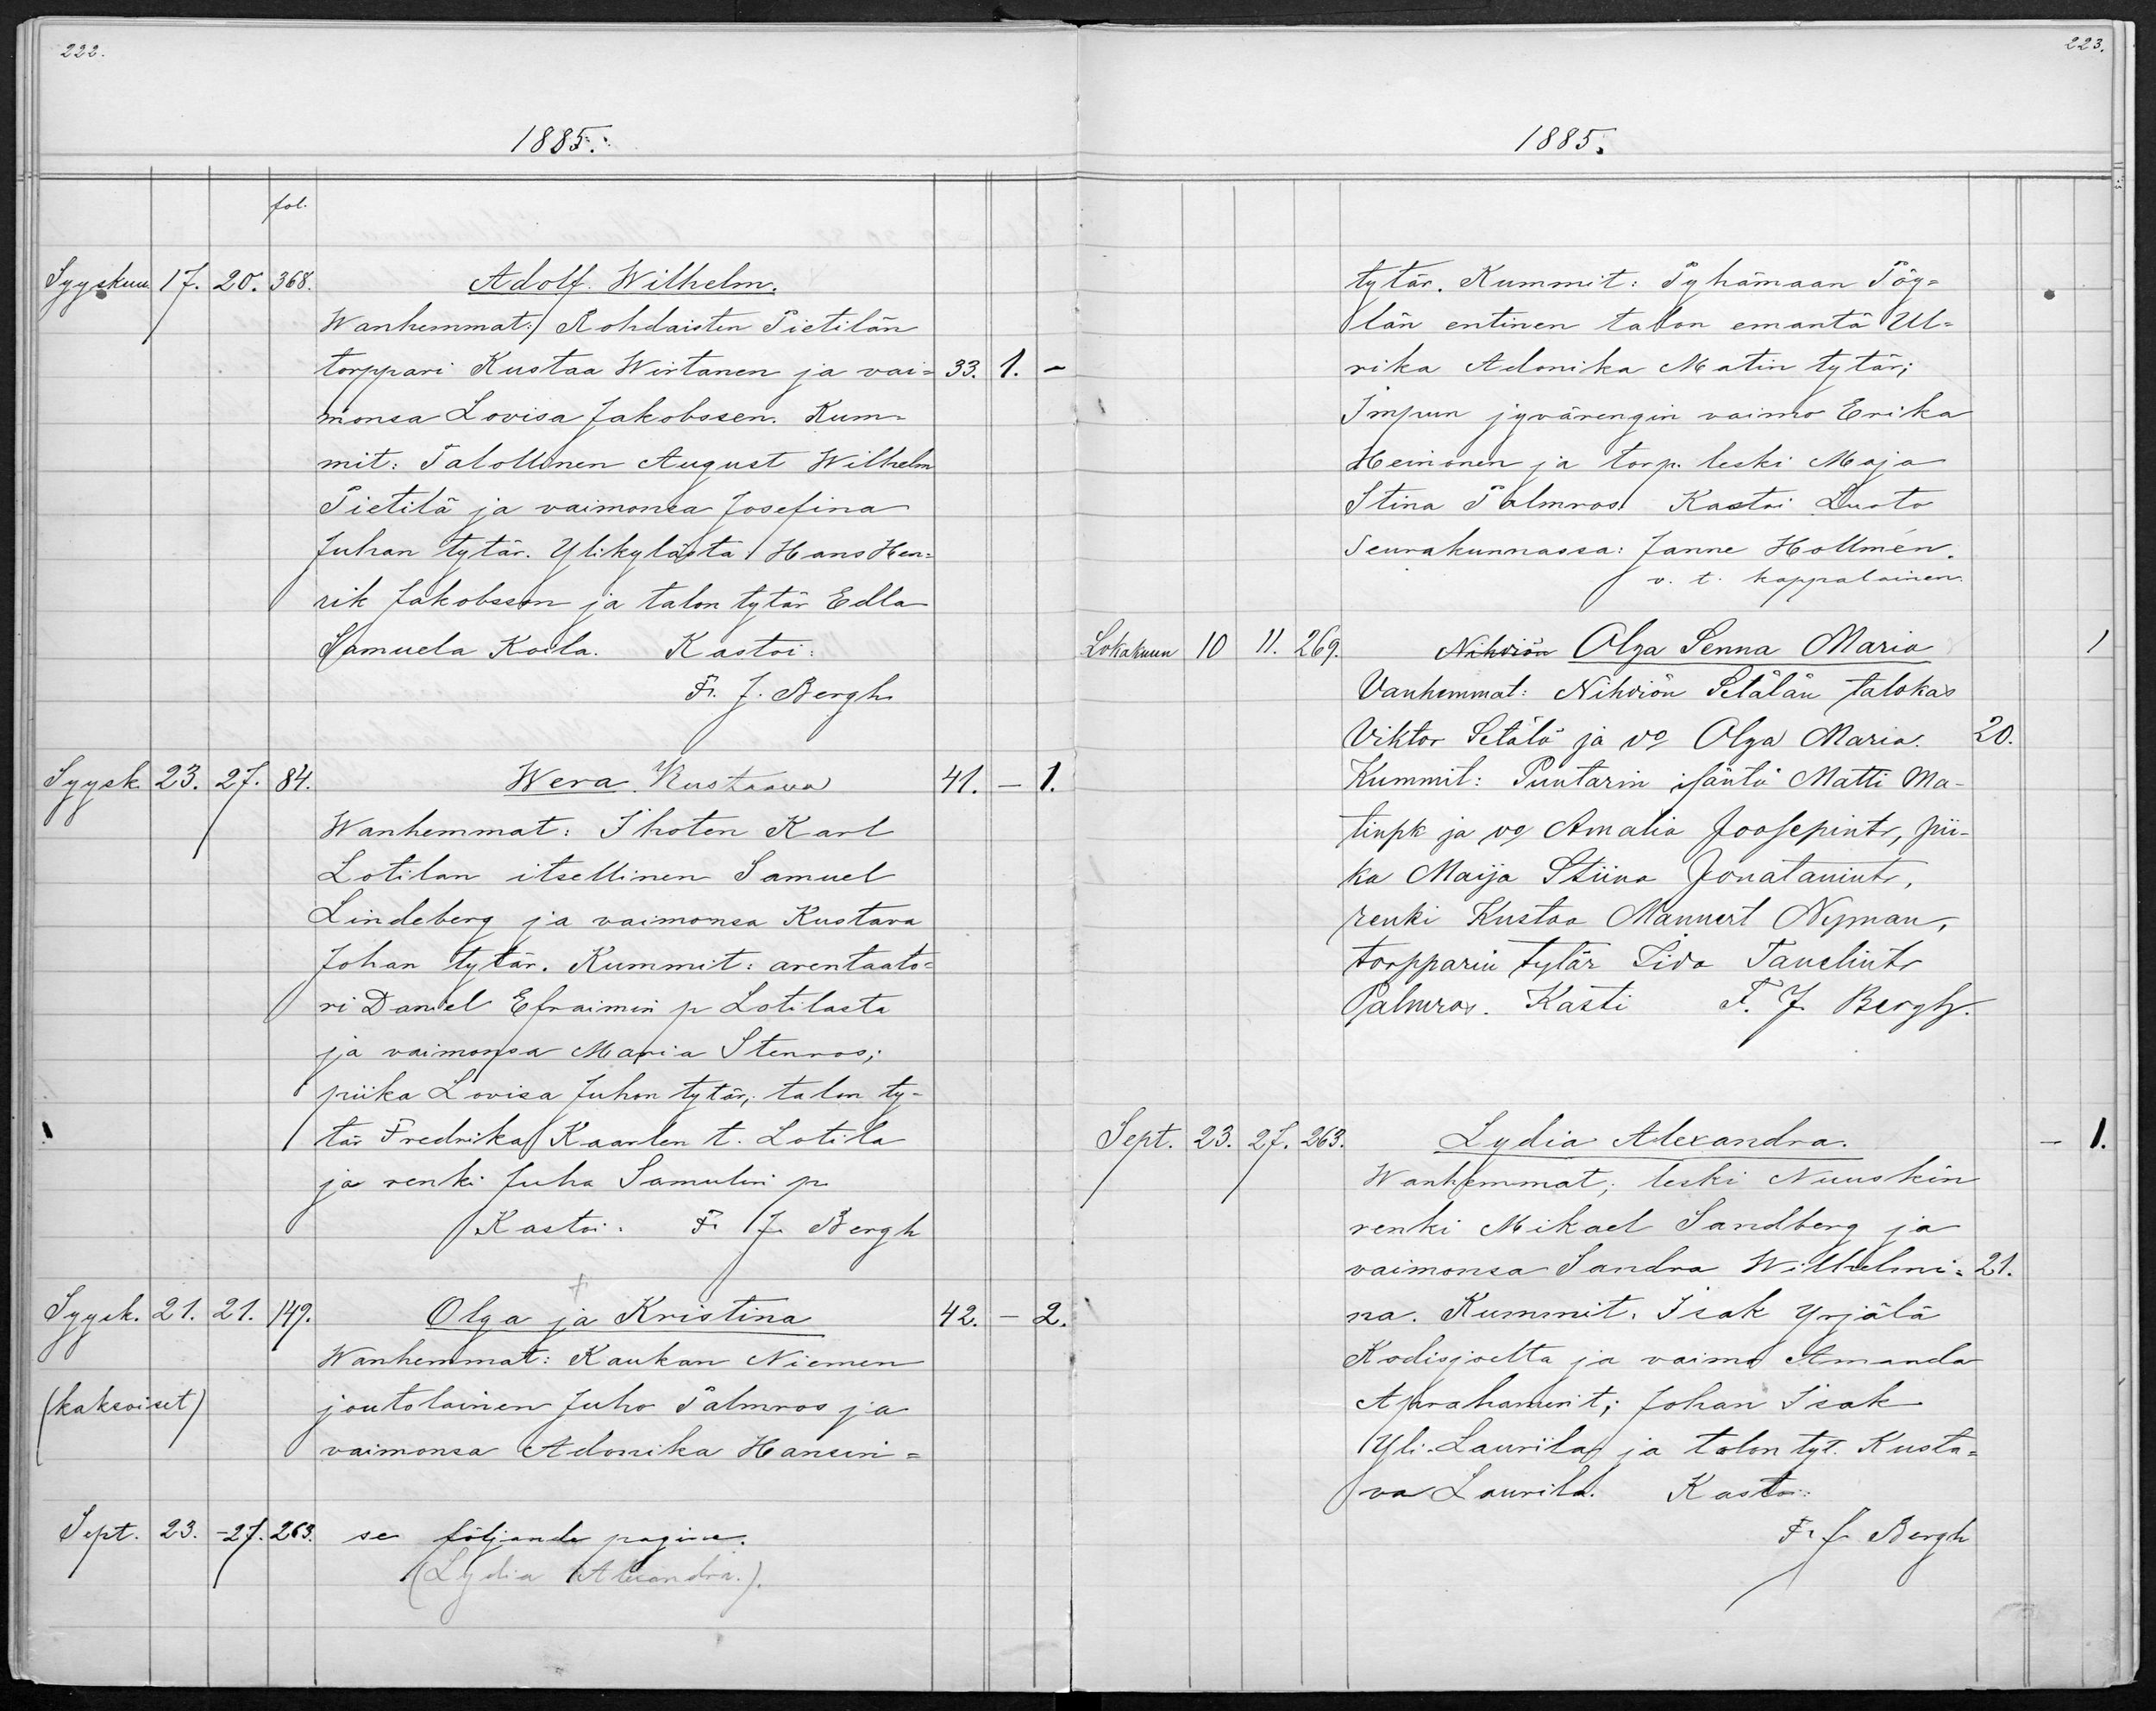 222.
1885.
fol.
Syyskuu 17. 20. 368. Adolf Wilhelm.
Wanhemmat: Rohdaisten Pietilän
torppari Kustaa Wirtanen ja vai= 33. 1. -
monsa Lovisa Jakobssen. Kum=
mit: Talollinen August Wilhelm
Pietilä ja vaimonsa Josefina
Juhan tytär. Ylikylästä Hans Hen=
rik Jakobsson ja talon tytär Edla
Samuela Koila. Kastoi:
Fr. J. Bergh
Syysk. 23. 27. 84. Wera Kustaava 41. - 1.
Wanhemmat: Ihoten Karl
Lotilan itsellinen Samuel
Lindeberg ja vaimonsa Kustava
Johan tytär. Kummit: arentaato=
ri Daniel Efraimin p Lotilasta
ja vaimonsa Maria Stenros;
piika Lovisa Juhon tytär, talon ty=
tär Fredrika Kaarlen t. Lotila
ja renki Juha Samulin p
Kastoi: Fr J. Bergh
Sygsk. 21. 21. 149. Olga ja Kristina 42. - 2.
Wanhemmat: Kaukan Niemen
(kaksoiset) joutolainen Juho Palmros ja
vaimonsa Adonika Hansin=
Sept. 23. -27. 263. se följande pagina.
(Lydia Alexandra.).
223.
1885.
tytär. Kummit: Pyhämaan Pöy=
län entinen talon emäntä Ul=
rika Adonika Matin tytär;
Impun jyvärengin vaimo Erika
Heinonen ja torp. leski Maja
Stina Palmros. Kastoi Luoto
Seurakunnassa: Janne Hollmén.
v. t. kappalainen.
Lokakuun 10 11. 269. Nihviön Olga Senna Maria 1
Vanhemmat: Nihviön Setälän talokas
Viktor Setälä ja vo Olga Maria. 20.
Kummit: Puutarin isäntä Matti Ma-
tinpk ja vo Amalia Joosepintr, pii-
ka Maija Stiina Jonatanintr,
renki Kustaa Mannert Nyman,
torpparin tytär Liva Tanelintr
Palmros. Kasti F. J. Bergh.
Sept. 23. 27. 263. Lydia Alexandra. - 1.
Wanhemmat; leski Nuuskin
renki Mikael Sandberg ja
vaimonsa Sandra Wilhelmi= 21.
na. Kummit. Isak Yrjälä
Kodisjoelta ja vaimo Amanda
Aprahamint; Johan Isak
Yli-Laurila ja talon tyt. Kusta=
va Laurila. Kastoi:
Fr. J. Bergh